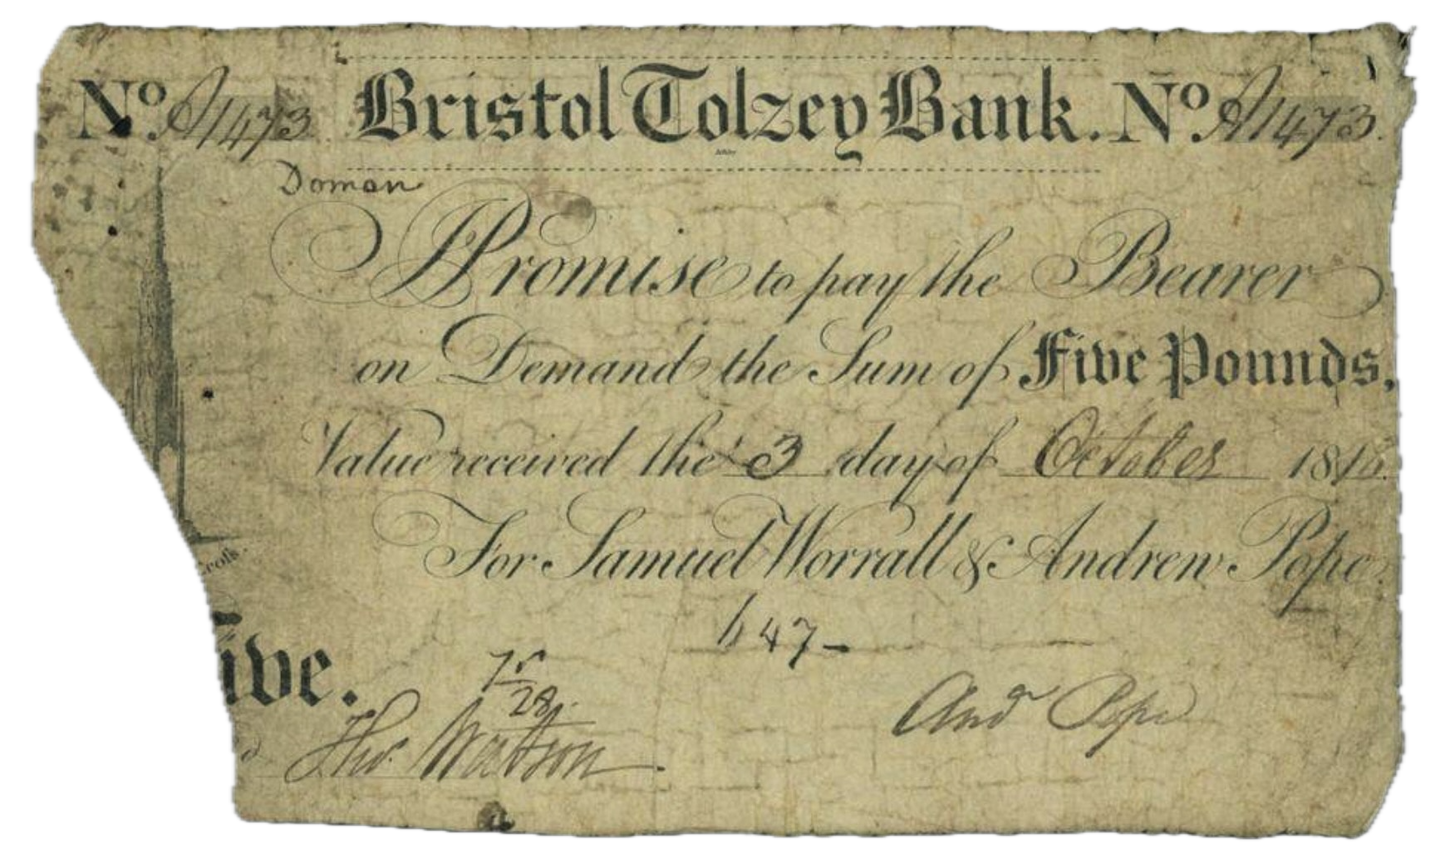 No. A1473 Bristol Tolzey Bank. No. A1473.
Doman
I Promise to pay the Bearer
on Demand the Sum of Five Pounds,
Value received the 3 day of October 181
For Samuel Worrall & Andrew Pope.
ross.
647-
ive.
28
Thos. Watson
Andw Pope